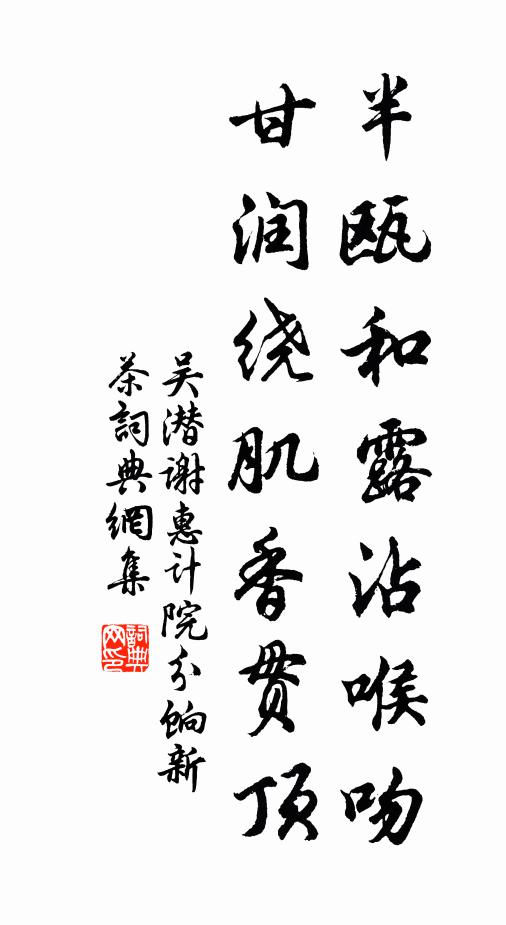 半瓯和露沾喉吻
甘润绕肌香贯顶
吴潜谢惠计院分饷新
茶詞典網集
詞典
网印